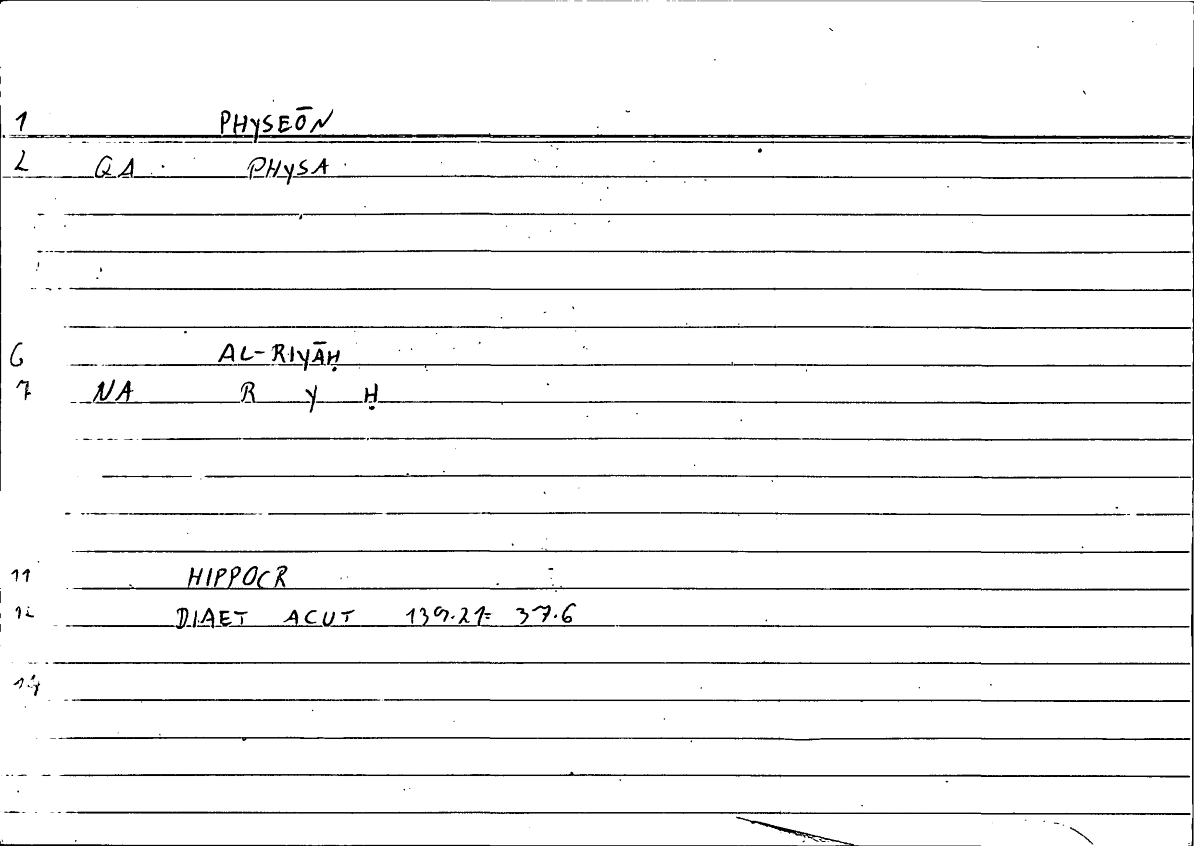 1 PHYSEŌN
2 QA PHYSA
6 AL-RIYĀḤ
7 NA R Y Ḥ
11 HIPPOCR
12 DIAET ACUT 139.21= 37.6
14